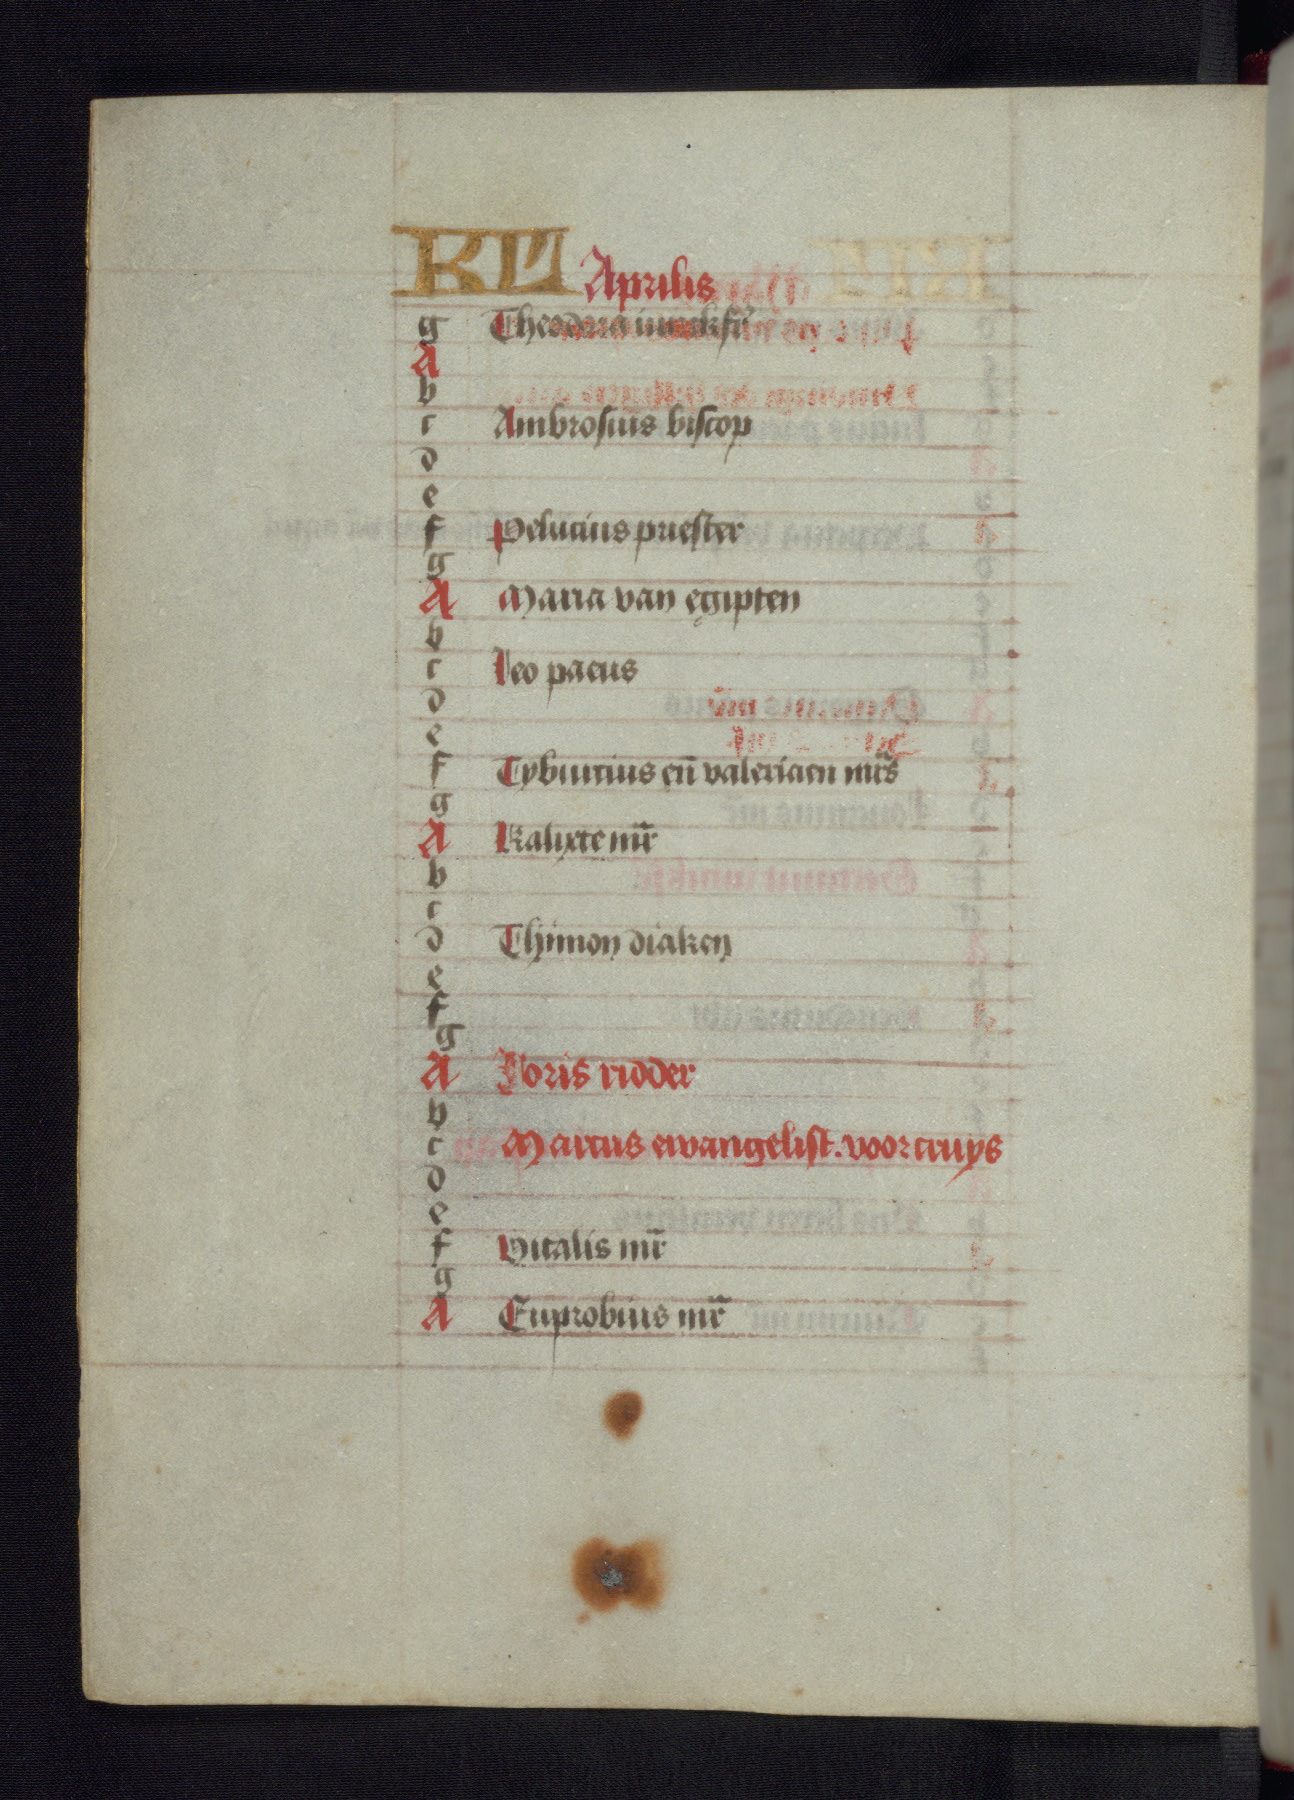 KL Aprilis
g Theodera
A
b
c Ambrosius biscop
d
e
f Pelucius priester
g
A Maria van egipten
b
c Leo paeus
d
e
f Tyburcius eñ valeriaen mr̄s
g
A Kalixte mr̄
b
c
d Thimon diaken
e
f
g
A Joris ridder
b
c Marcus ewangelist. voor cruys
d
e
f Vitalis mr̄
g
A Euprobius mr̄